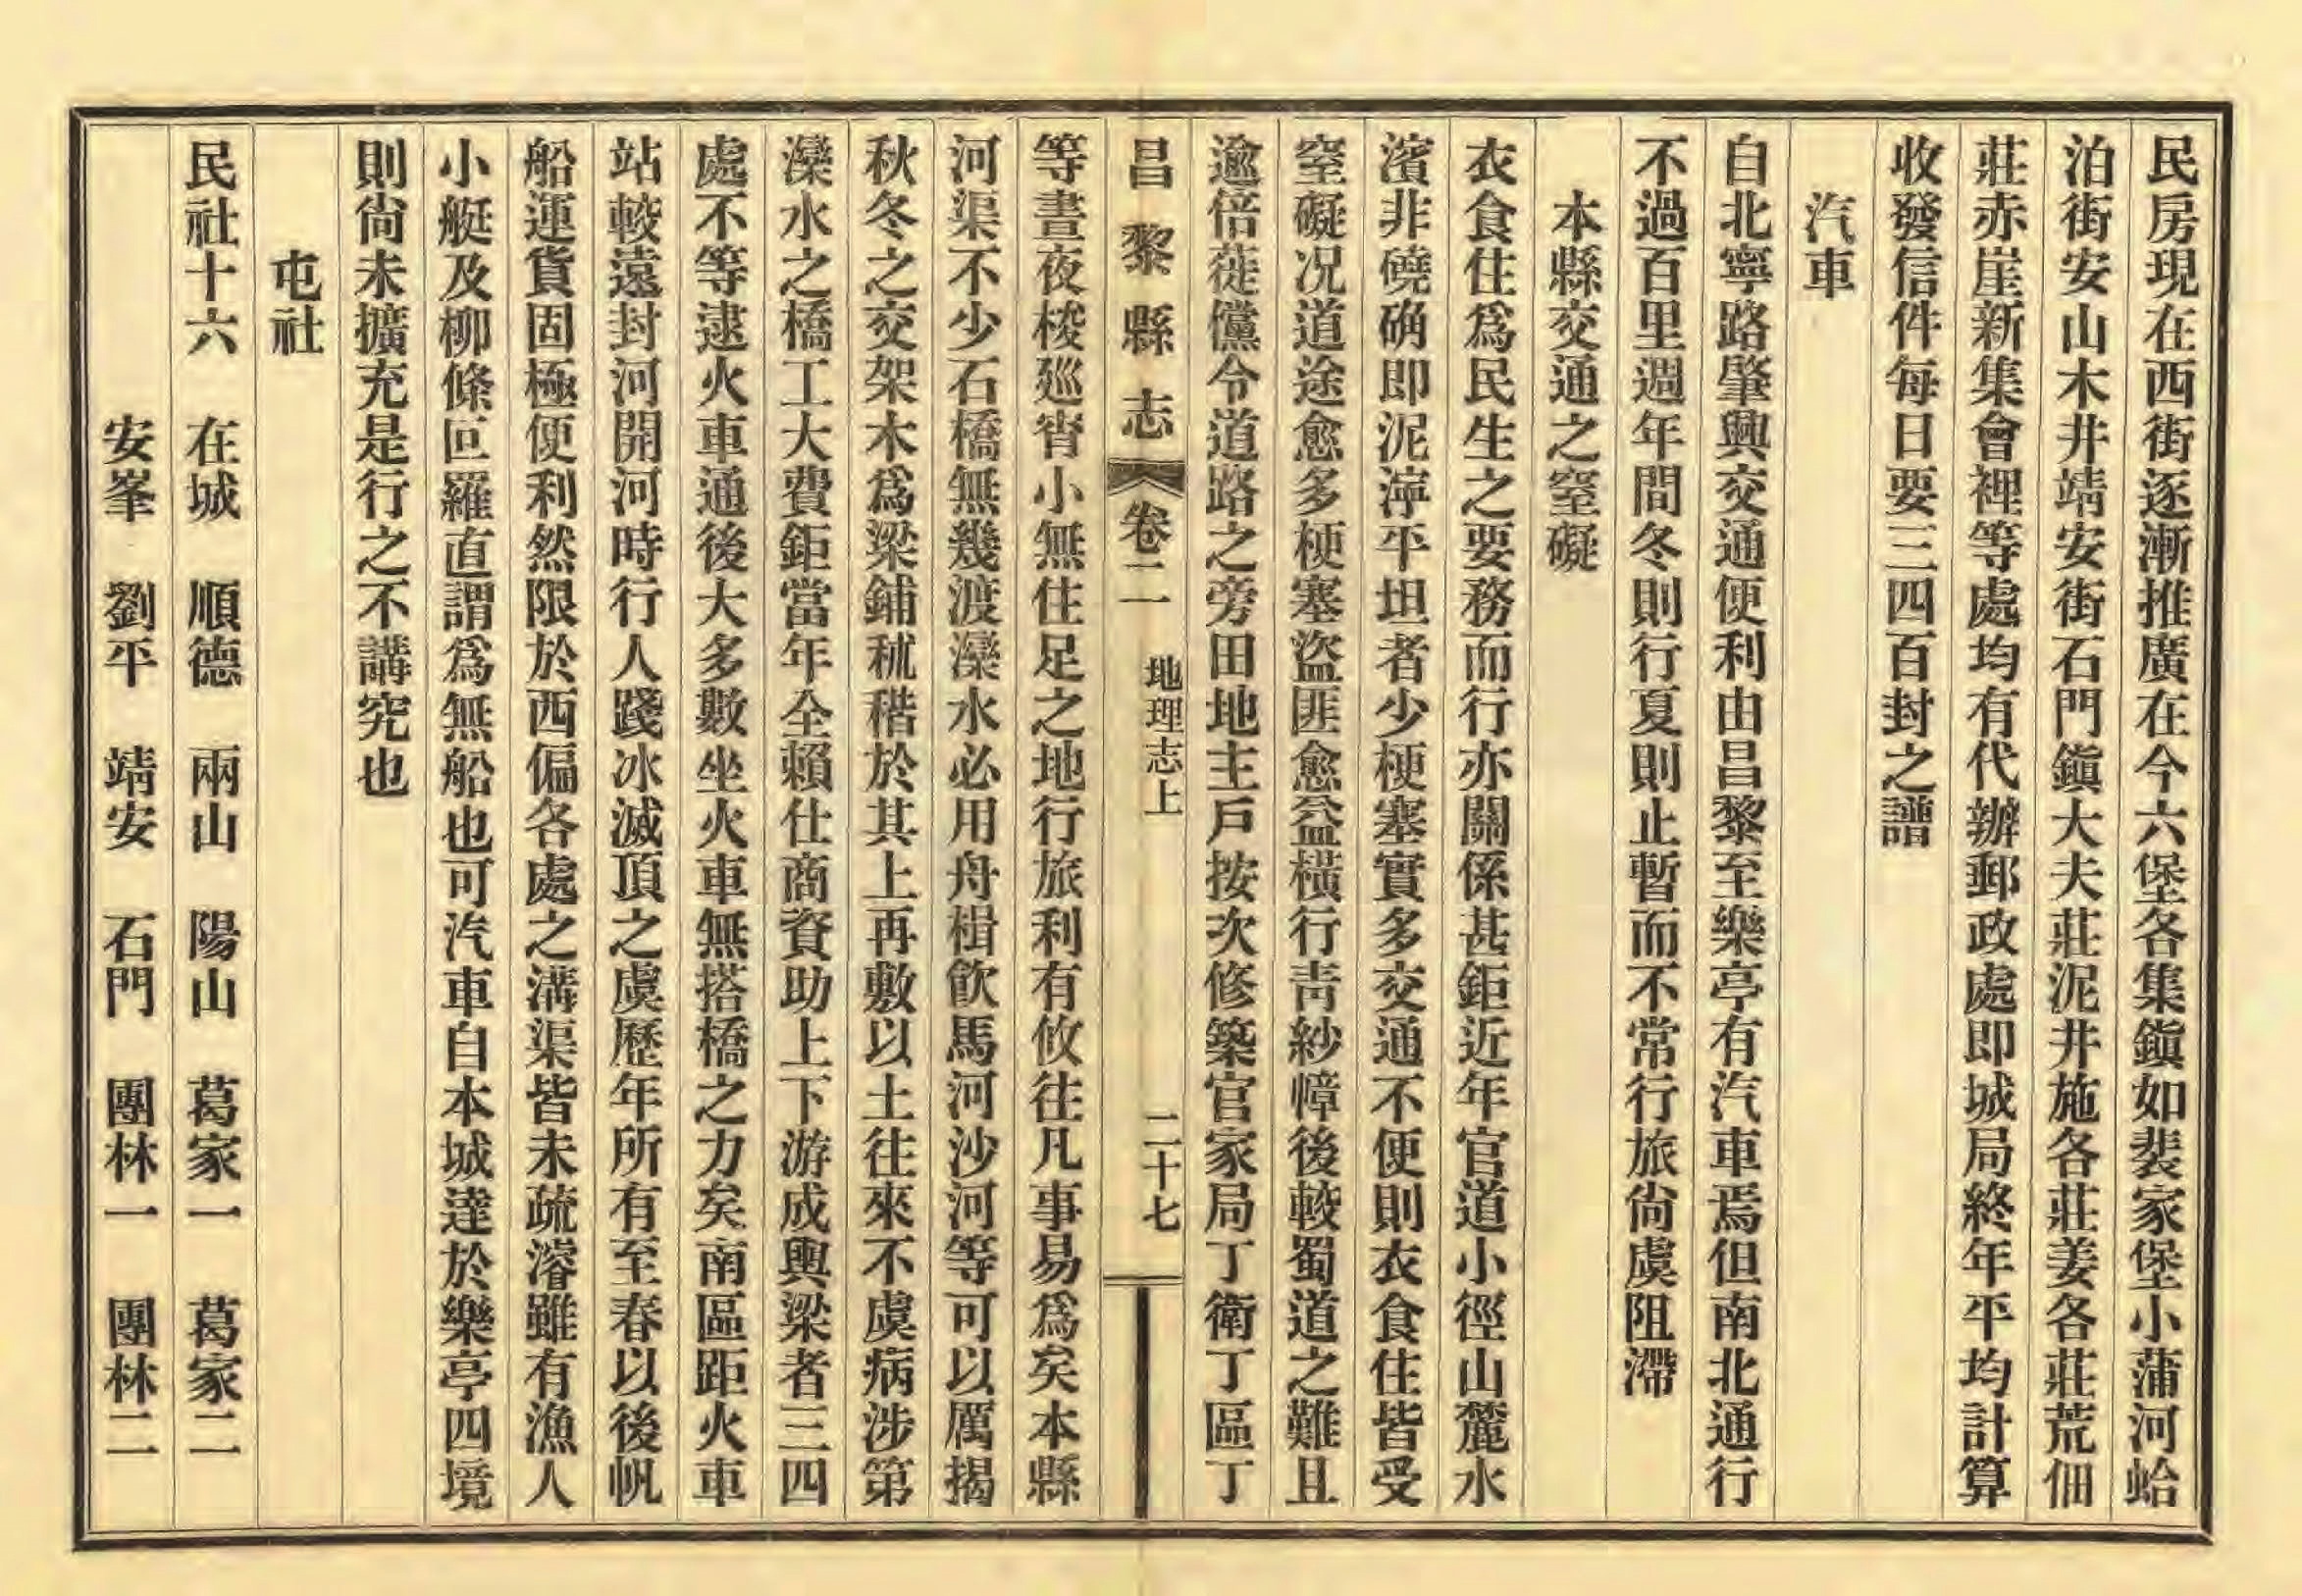 民房現在西街逐漸推廣在今六堡各集鎭如裴家堡小蒲河蛤
泊街安山木井靖安街石門鎭大夫莊泥井施各莊姜各莊荒佃
莊赤崖新集會裡等處均有代辦郵政處即城局終年平均計算
收發信件每日要三四百封之譜
汽車
自北寧路肇興交通便利由昌黎至樂亭有汽車焉但南北通行
不過百里週年間冬則行夏則止暫而不常行旅尙虞阻滯
本縣交通之窒礙
衣食住爲民生之要務而行亦關係甚鉅近年官道小徑山麓水
濱非磽确即泥濘平坦者少梗塞實多交通不便則衣食住皆受
窒礙况道途愈多梗塞盜匪愈益橫行靑紗幛後較蜀道之難且
逾倍蓰儻令道路之旁田地主戶按次修築官家局丁衛丁區丁
昌黎縣志 卷二 地理志上 二十七
等晝夜梭廵宵小無住足之地行旅利有攸往凡事易爲矣本縣
河渠不少石橋無幾渡灤水必用舟楫飮馬河沙河等可以厲揭
秋冬之交架木爲梁鋪秫稭於其上再敷以土往來不虞病涉第
灤水之橋工大費鉅當年全賴仕商資助上下游成輿梁者三四
處不等逮火車通後大多數坐火車無搭橋之力矣南區距火車
站較遠封河開河時行人踐冰滅頂之虞歷年所有至春以後帆
船運貨固極便利然限於西偏各處之溝渠皆未疏濬雖有漁人
小艇及柳條叵羅直謂爲無船也可汽車自本城達於樂亭四境
則尙未擴充是行之不講究也
屯社
民社十六 在城 順德 兩山 陽山 葛家一 葛家二
安峯 劉平 靖安 石門 團林一 團林二